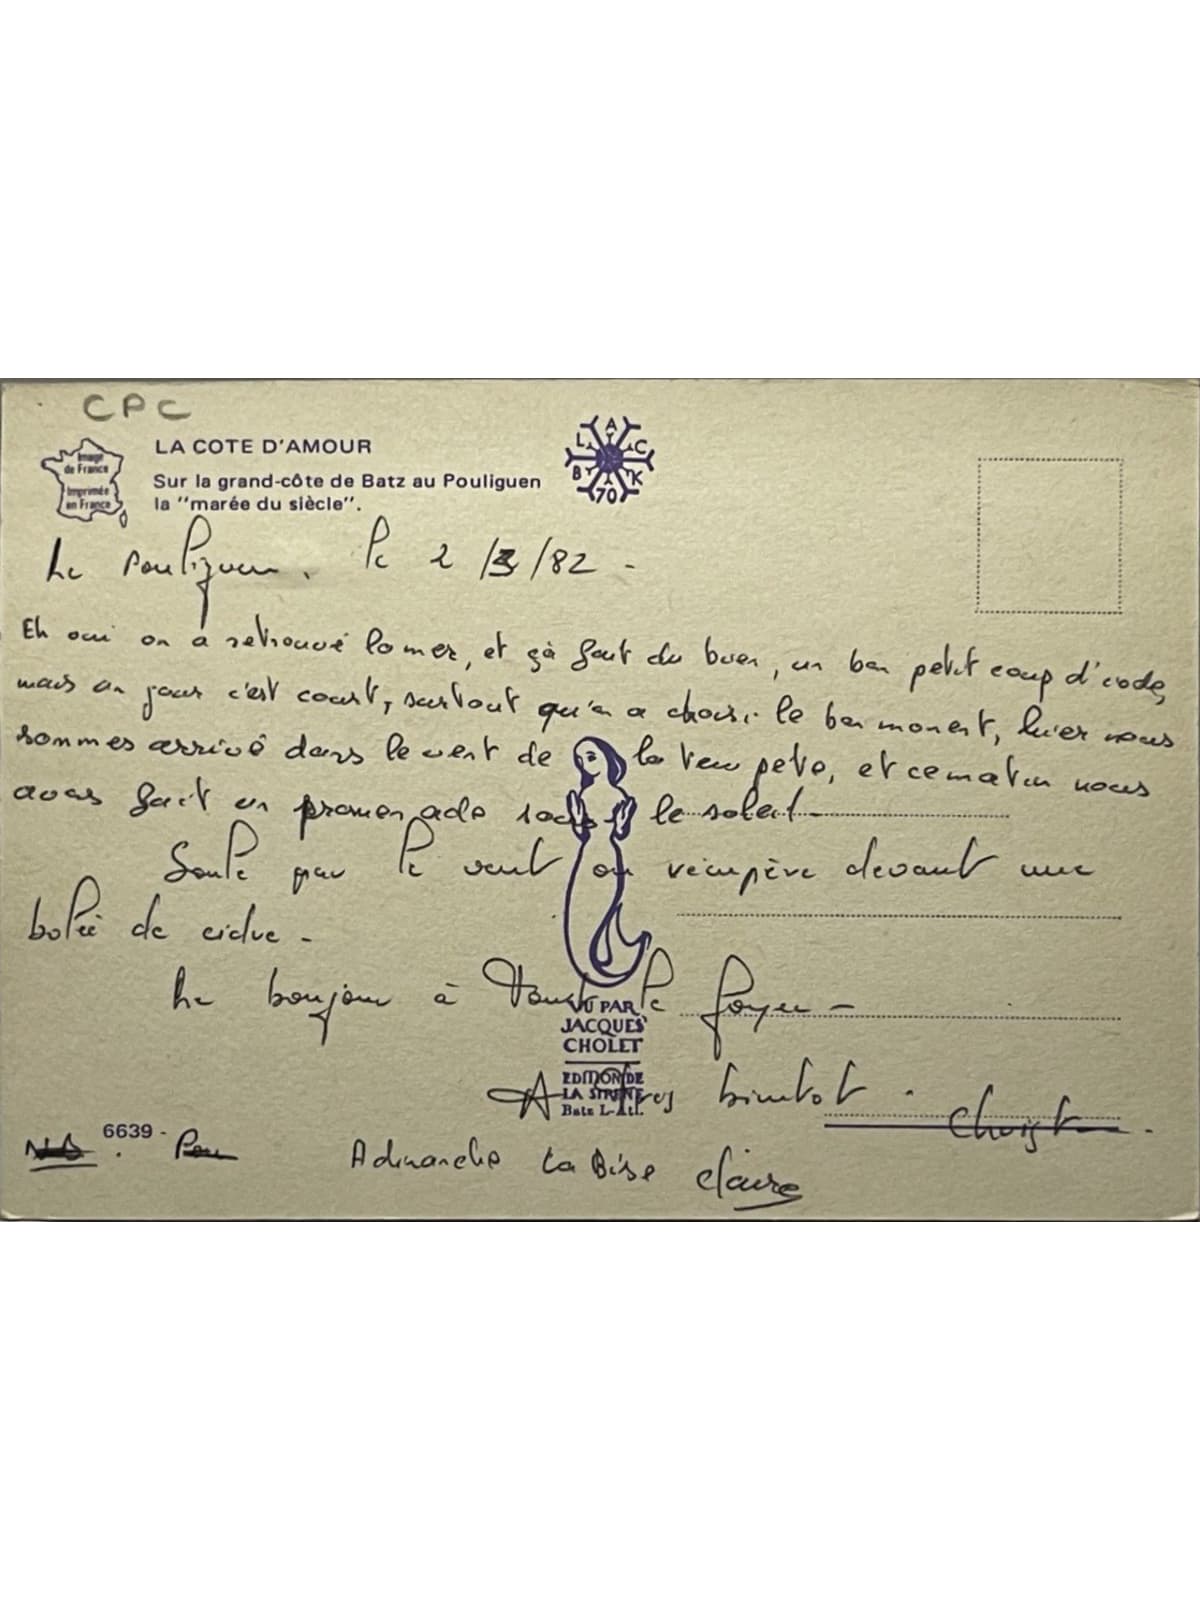 CPC
Image
de France
Imprimée
en France
LA COTE D'AMOUR
Sur la grand-côte de Batz au Pouliguen
la "marée du siècle".
BLACK
70
Le Pouliguen, le 2/3/82 -
Eh oui on a retrouvé la mer, et çà fait du bien, un bon petit coup d'iode,
mais un jour c'est court, surtout qu'on a choisi le bon moment, hier nous
sommes arrivé dans le vent de la tempete, et ce matin nous
avons fait un promenade sous le soleil -
Soulé par le vent on récupère devant une
bolée de cidre -
Le bonjour à tout le foyer -
A tres bientot . Christ
VU PAR
JACQUES
CHOLET
EDITION DE
LA SIRENE
Batz L-Atl.
6639 -
A dimanche La Bise Claire